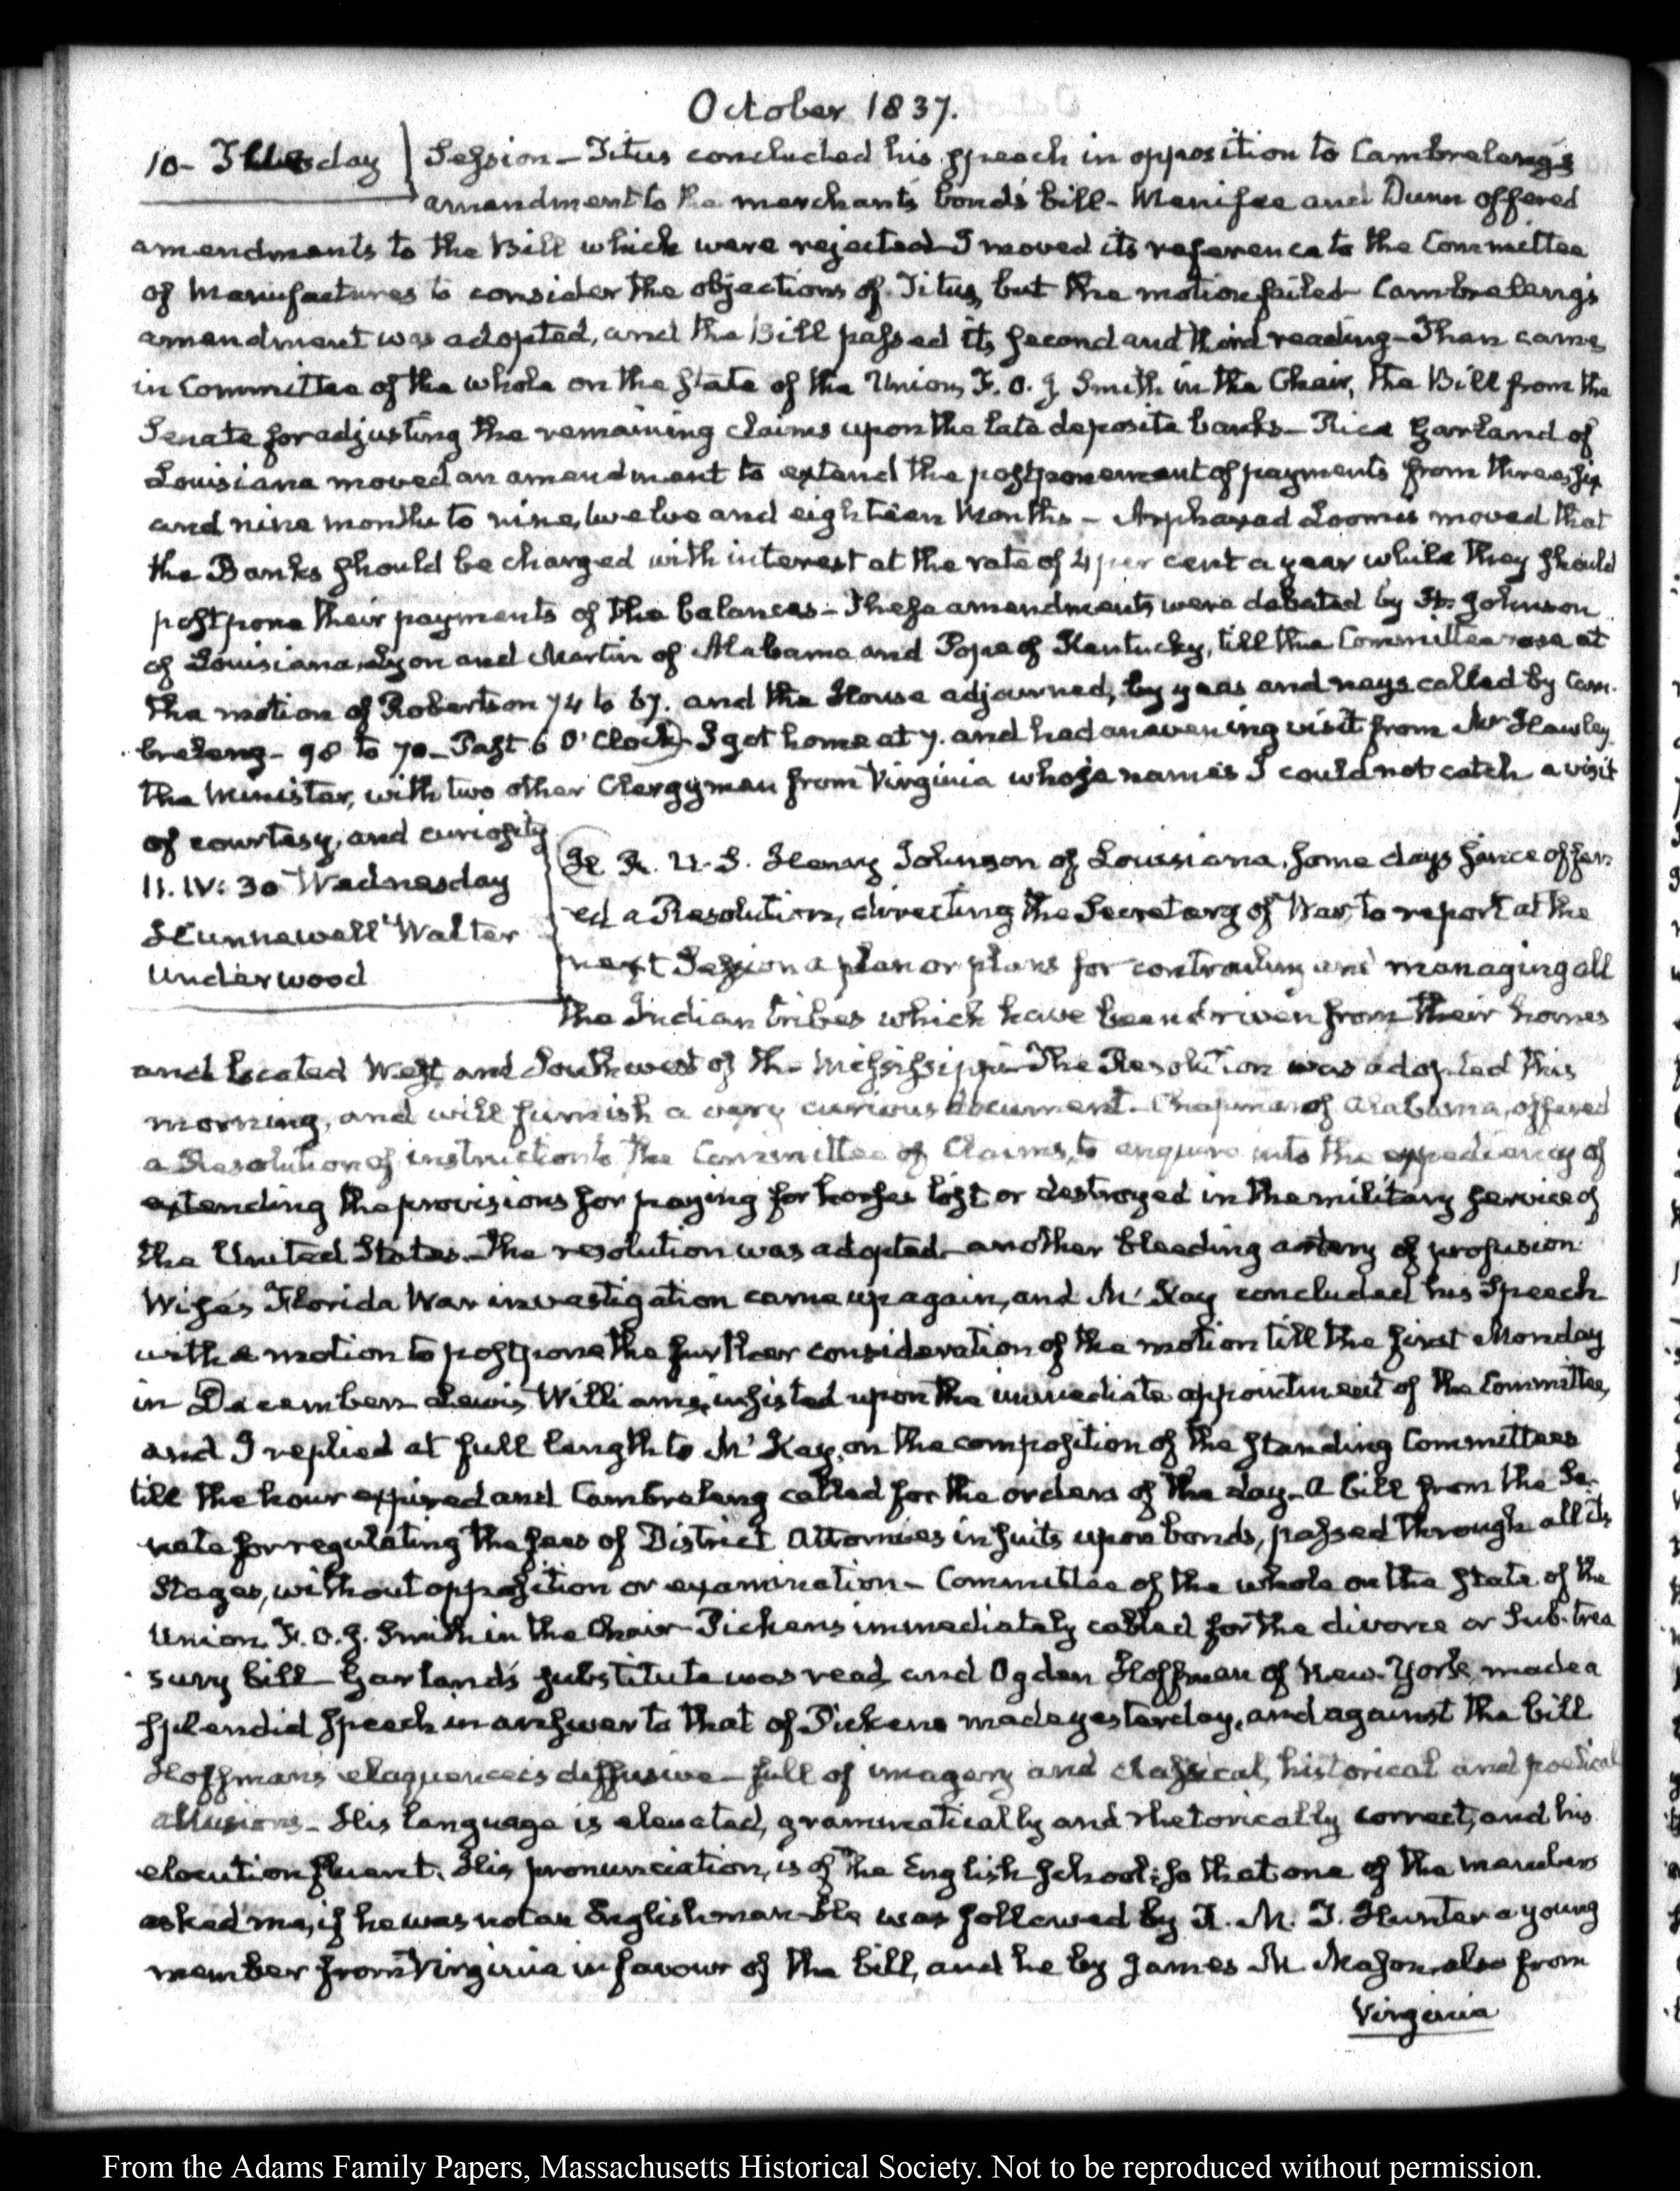 October 1837.
10- Tuesday
Session – Titus concluded his speech in opposition to Cambreleng's
amendment to the merchants bonds bill – Menifee and Dunn offered
amendments to the Bill which were rejected – I moved its reference to the Committee
of Manufactures to consider the objections of Titus, but the motion failed – Cambreleng's
amendment was adopted, and the Bill passed its second and third reading – Then came
in Committee of the whole on the State of the Union, F. O. J. Smith in the Chair, the Bill from the
Senate for adjusting the remaining claims upon the late deposite banks – Rice Garland of
Louisiana moved an amendment to extend the postponement of payments from three, six
and nine months to nine, twelve and eighteen Months – Arphaxad Loomis moved that
the Banks should be charged with interest at the rate of 4 per cent a year while they should
postpone their payments of the balances – These amendments were debated by H. Johnson
of Louisiana, Lyon and Martin of Alabama, and Pope of Kentucky, till the Committee rose at
the motion of Robertson 74 to 67. and the House adjourned, by yeas and nays called by Cam-
breleng – 98 to 70 – Past 6 O'Clock – I got home at 7. and had an evening visit from Mr Hawley
the Minister, with two other Clergymen from Virginia whose names I could not catch a visit
of courtesy, and curiosity
11. IV: 30 Wednesday
Hunnewell Walter
Underwood
H. R. U. S. Henry Johnson of Louisiana, some days since offer-
ed a Resolution, directing the Secretary of War, to report at the
next Session a plan or plans for controuling and managing all
the Indian tribes which have been driven from their homes
and located West and Southwest of the Mississippi – The Resolution was adopted this
morning, and will furnish a very curious document – Chapman of Alabama, offered
a Resolution of instruction to the Committee of Claims, to enquire into the expediency of
extending the provisions for paying for horses lost or destroyed in the military service of
the United States. The resolution was adopted – another bleeding artery of profusion
Wise's Florida War investigation came up again, and McKay concluded his Speech
with a motion to postpone the further consideration of the motion till the first Monday
in December – Lewis Williams, insisted upon the immediate appointment of the Committee,
and I replied at full length to McKay, on the composition of the standing Committees
till the hour expired and Cambreleng called for the orders of the day – A bill from the Se-
nate for regulating the fees of District Attornies in suits upon bonds, passed through all its
Stages, without opposition or examination – Committee of the whole on the State of the
Union. F. O. J. Smith in the Chair – Pickens immediately called for the divorce or Sub-trea
sury bill – Garland's substitute was read, and Ogden Hoffman of New-York, made a
splendid speech in answer to that of Pickens made yesterday, and against the bill
Hoffman's eloquence is diffusive – full of imagery and classical, historical and poetical
allusions – His language is elevated, grammatically and rhetorically correct, and his
elocution fluent. His pronunciation, is of the English school; so that one of the members
asked me, if he was not an Englishman – He was followed by R. M. T. Hunter a young
member from Virginia in favour of the bill, and he by James M Mason, also from
Virginia
From the Adams Family Papers, Massachusetts Historical Society. Not to be reproduced without permission.